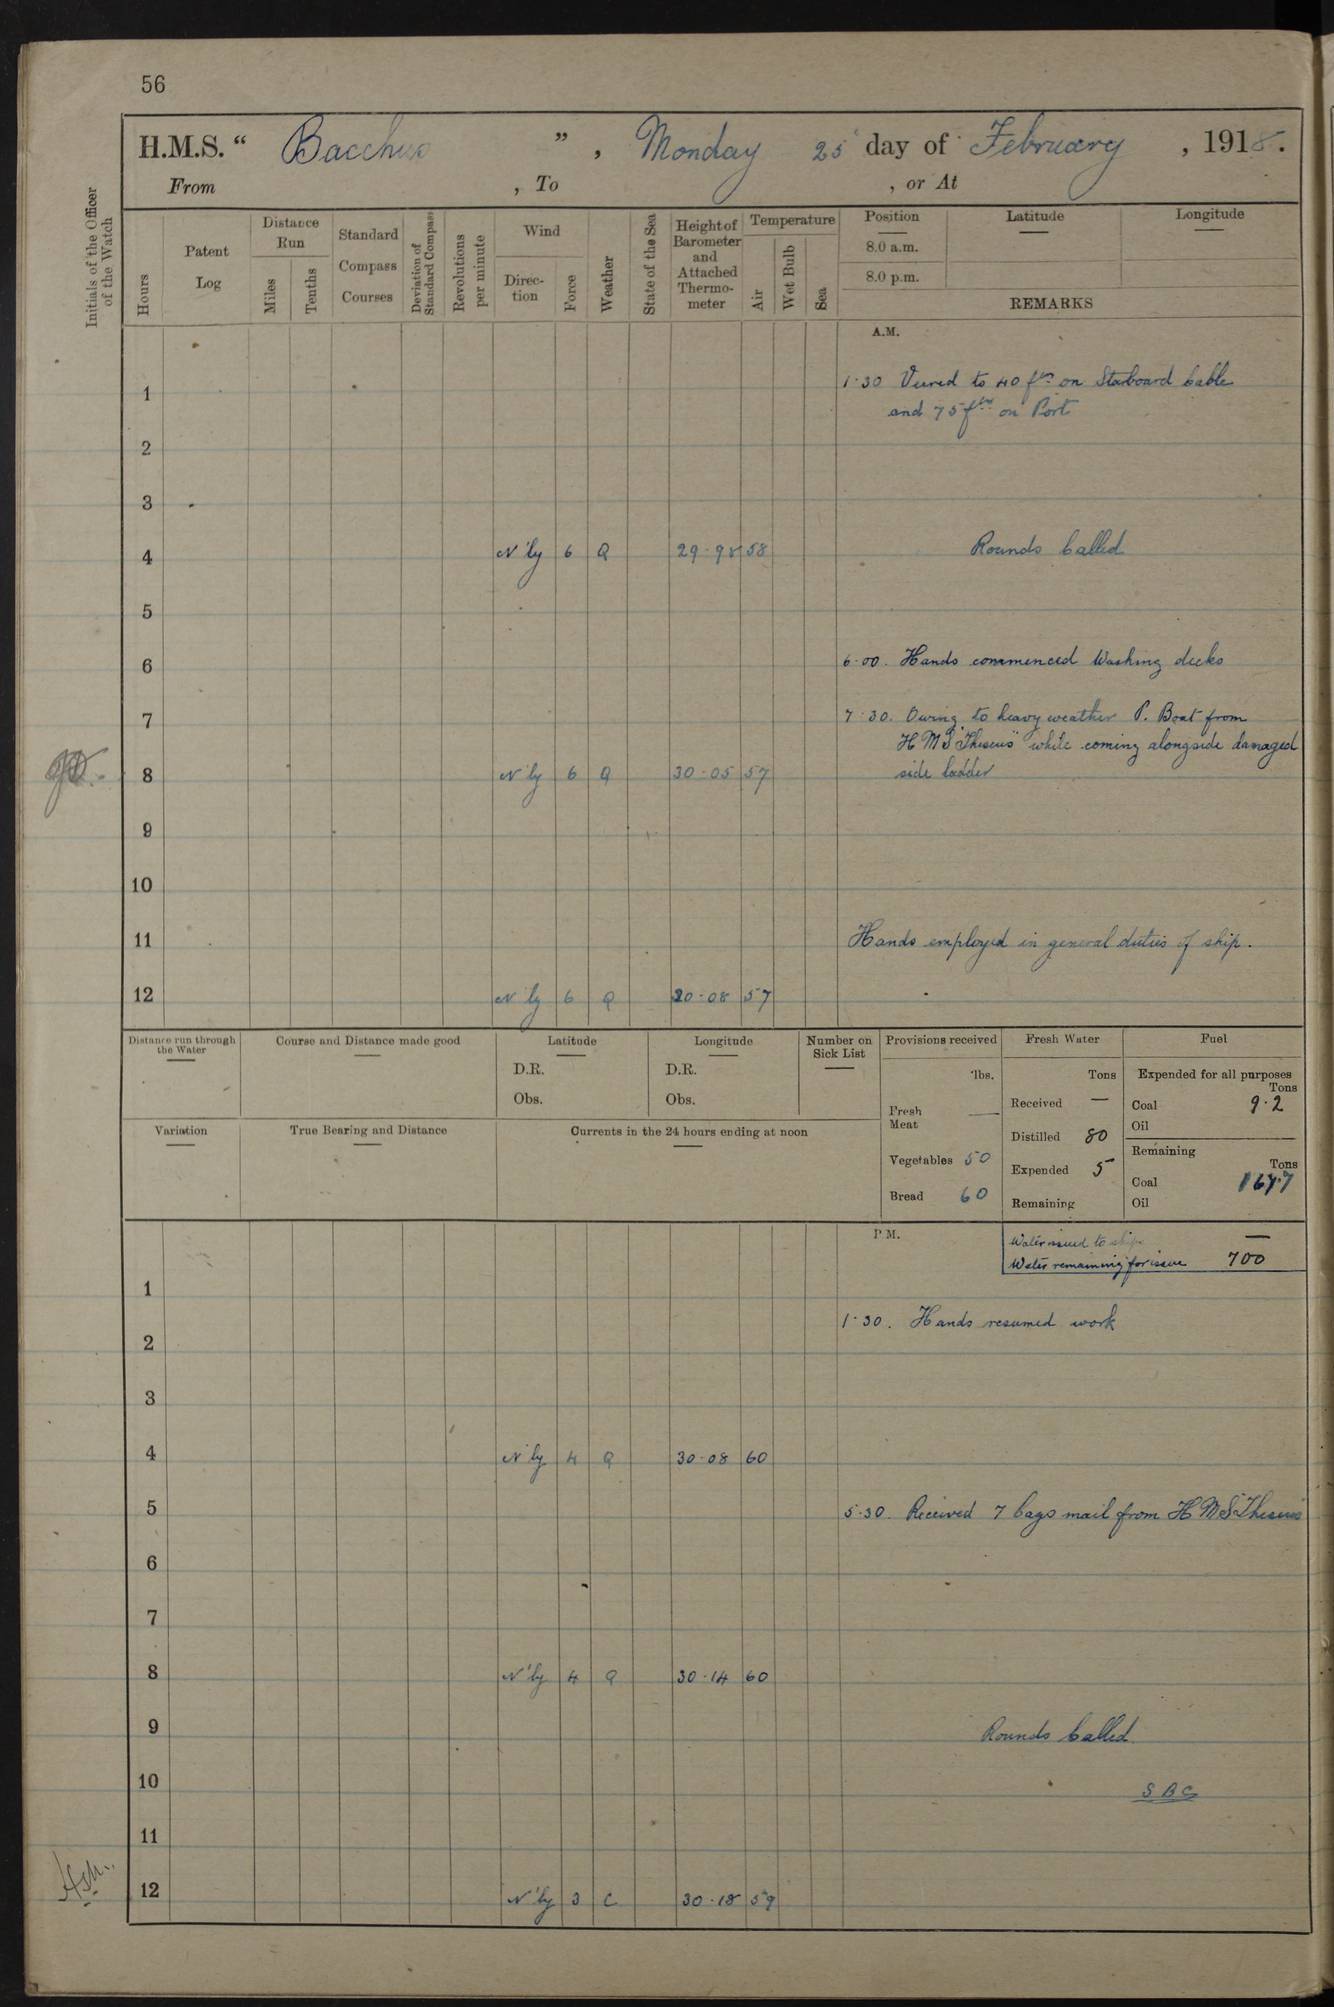 56
H.M.S. " Bacchus ", Monday 25 day of February, 1918.
From , To , or At
Initials of the Officer of the Watch
Hours
Patent Log
Distance Run
Miles
Tenths
Standard Compass Courses
Deviation of Standard Compass
Revolutions per minute
Wind
Direc-tion
Force
Weather
State of the Sea
Height of Barometer and Attached Thermo-meter
Temperature
Air
Wet Bulb
Sea
Position
Latitude
Longitude
8.0 a.m.
8.0 p.m.
REMARKS
A.M.
1 1.30 Veered to 40 fms on Starboard Cable
and 75 fms on Port
2
3
4 N'ly 6 Q 29.98 58 Rounds Called
5
6 6.00. Hands commenced Washing decks
7 7.30. Owing to heavy weather P. Boat from
H M S "Theseus" while coming alongside damaged
8 N'ly 6 Q 30.05 57 side ladder
9
10
11 Hands employed in general duties of ship.
12 N'ly 6 Q 30.08 57
Distance run through the Water
Course and Distance made good
Latitude
D.R.
Obs.
Longitude
D.R.
Obs.
Number on Sick List
Variation
True Bearing and Distance
Currents in the 24 hours ending at noon
Provisions received
lbs.
Fresh Meat —
Vegetables 50
Bread 60
Fresh Water
Tons
Received —
Distilled 80
Expended 5
Remaining
Fuel
Expended for all purposes
Tons
Coal 9.2
Oil
Remaining
Tons
Coal 167.7
Oil
P.M.
Water issued to ships —
Water remaining for issue 700
1
1.30. Hands resumed work
2
3
4 N'ly 4 Q 30.08 60
5 5.30. Received 7 bags mail from H M S "Theseus"
6
7
8 N'ly 4 Q 30.14 60
9 Rounds Called
10 S B C
11
12 N'ly 3 C 30.18 59